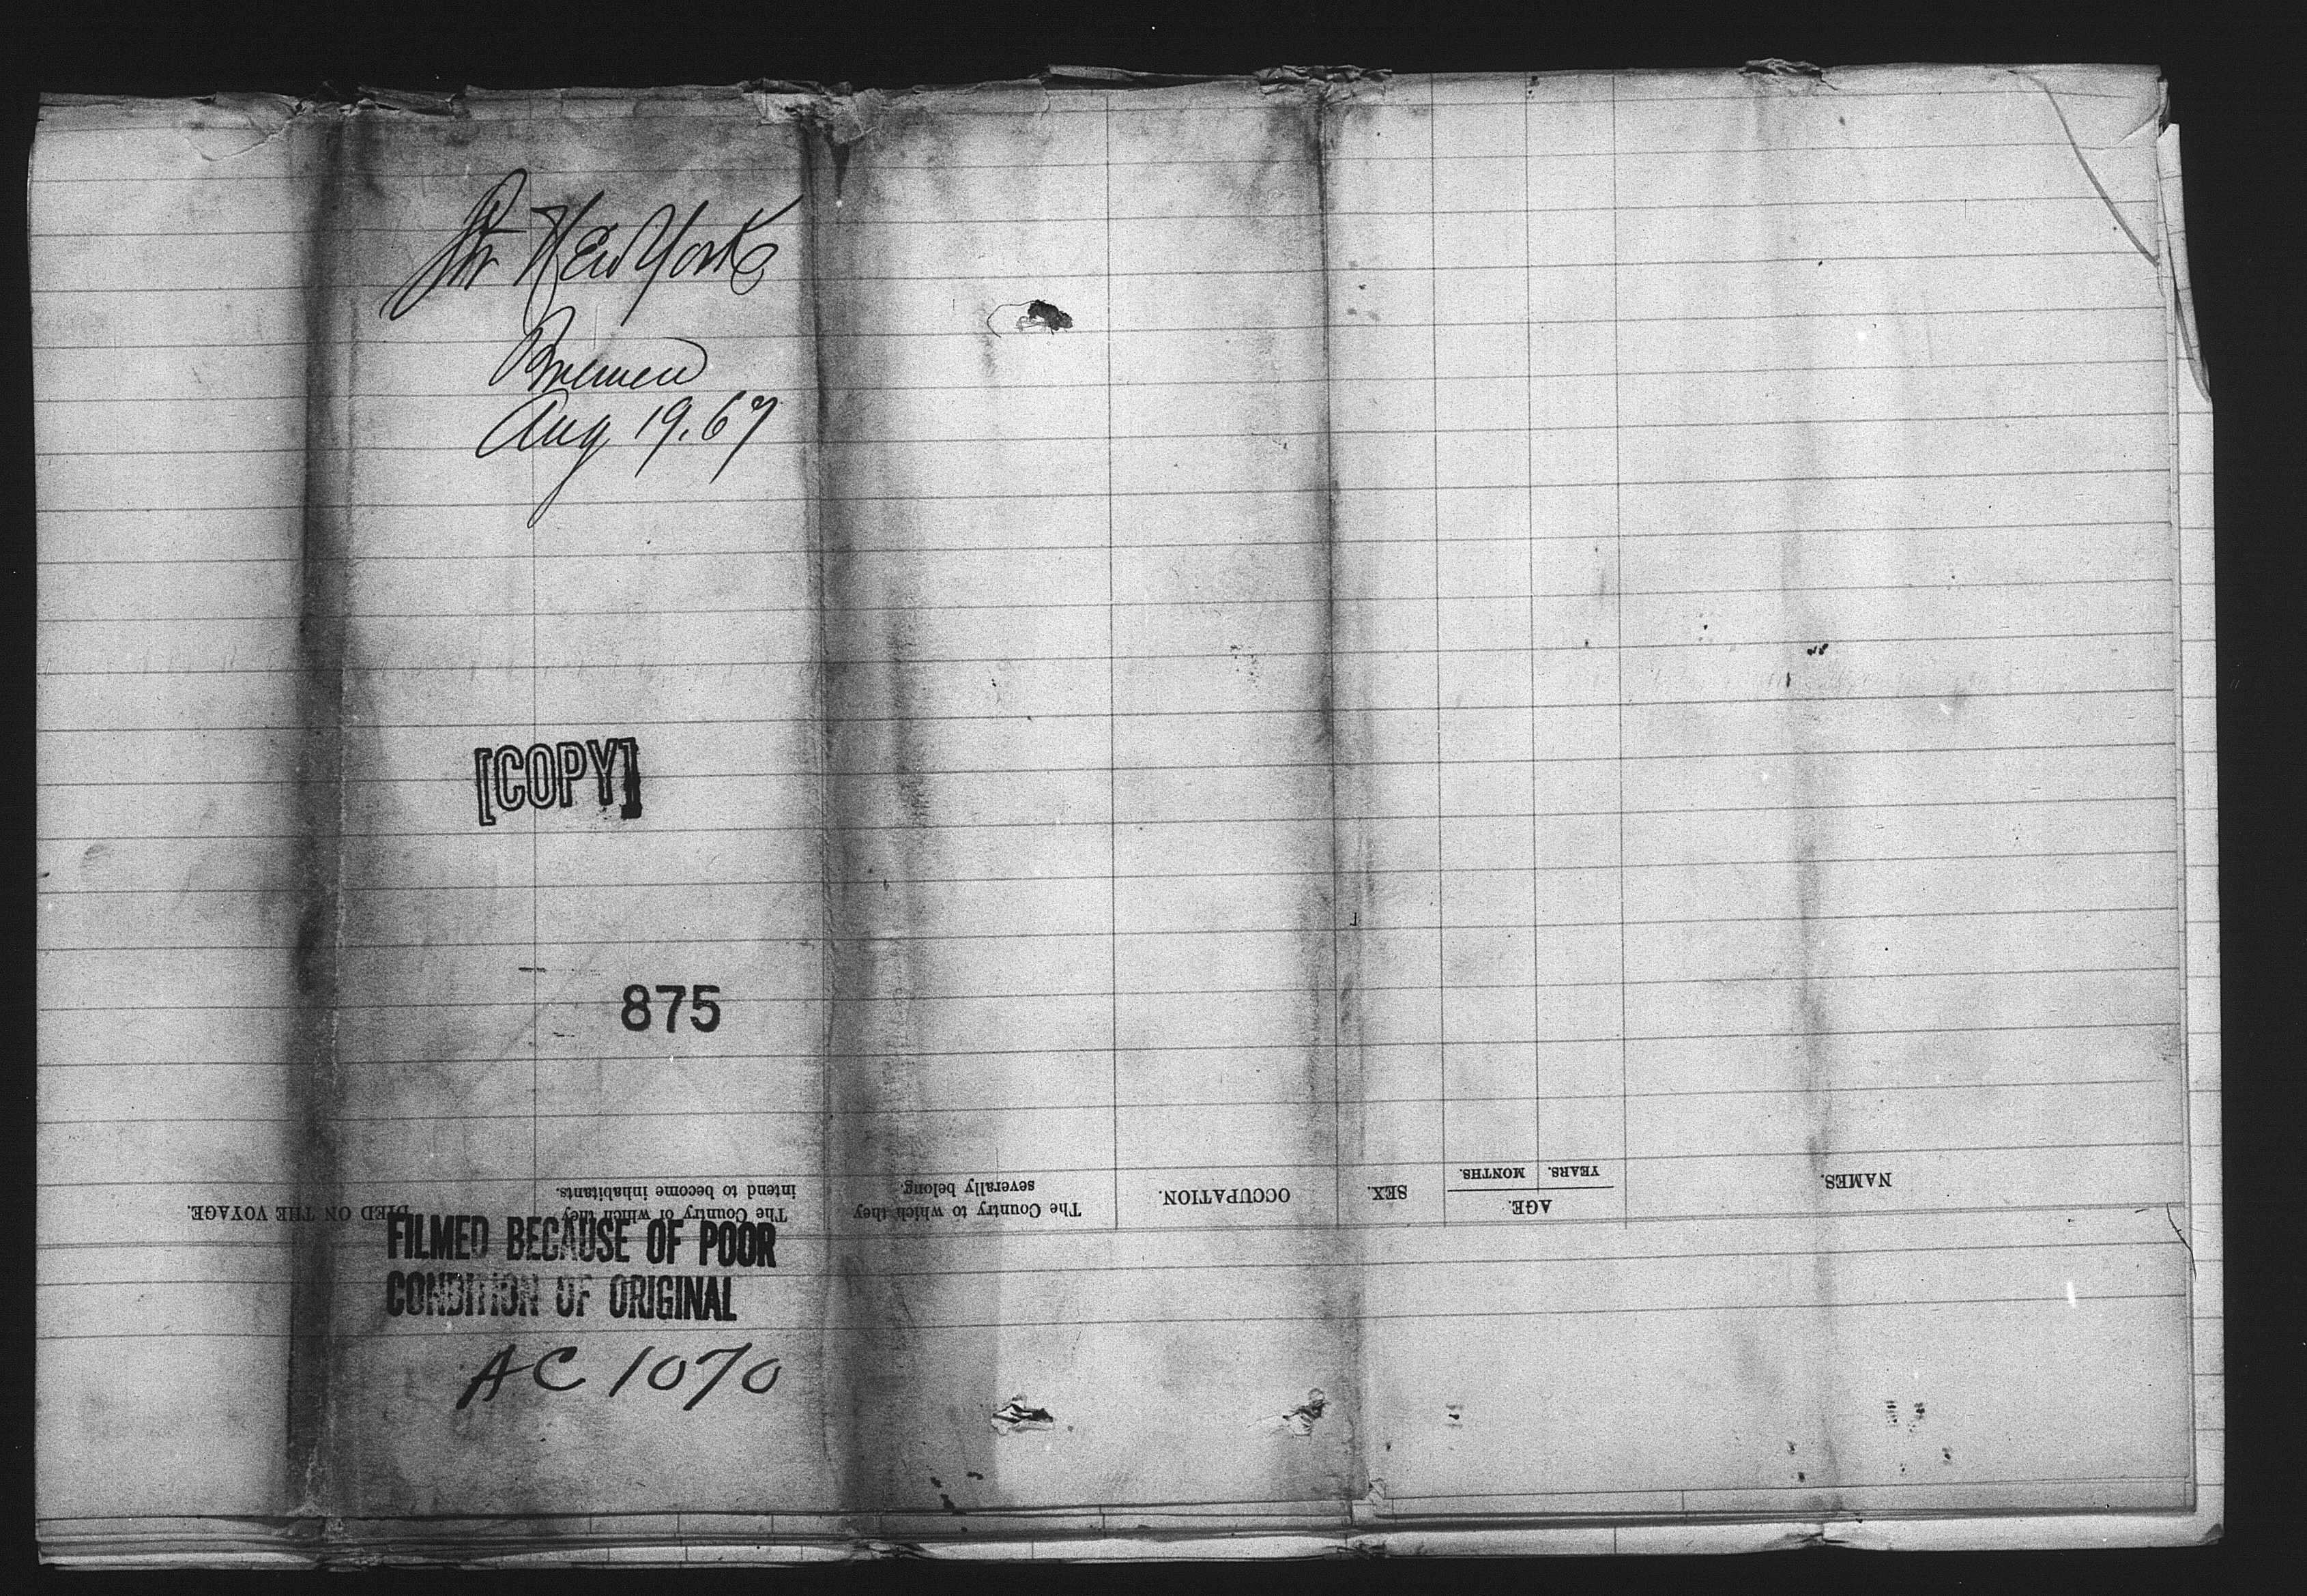 Str New York
Bremen
Aug 19. 67
[COPY]
875
FILMED BECAUSE OF POOR
CONDITION OF ORIGINAL
AC 1070
NAMES.
AGE.
YEARS.
MONTHS.
SEX.
OCCUPATION.
The Country to which they
severally belong.
The Country of which they
intend to become inhabitants.
DIED ON THE VOYAGE.